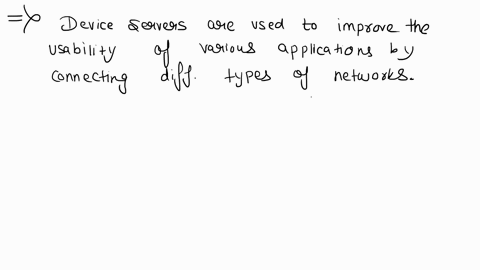 => Device servers are used to improve the
usability of various applications by
connecting diff. types of networks.